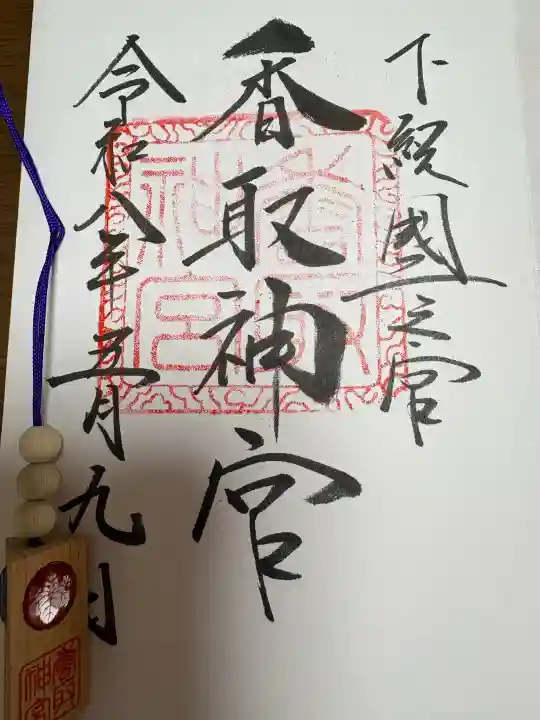 下総國一之宮
香取神宮
令和八年五月九日
香取神宮
香取神宮